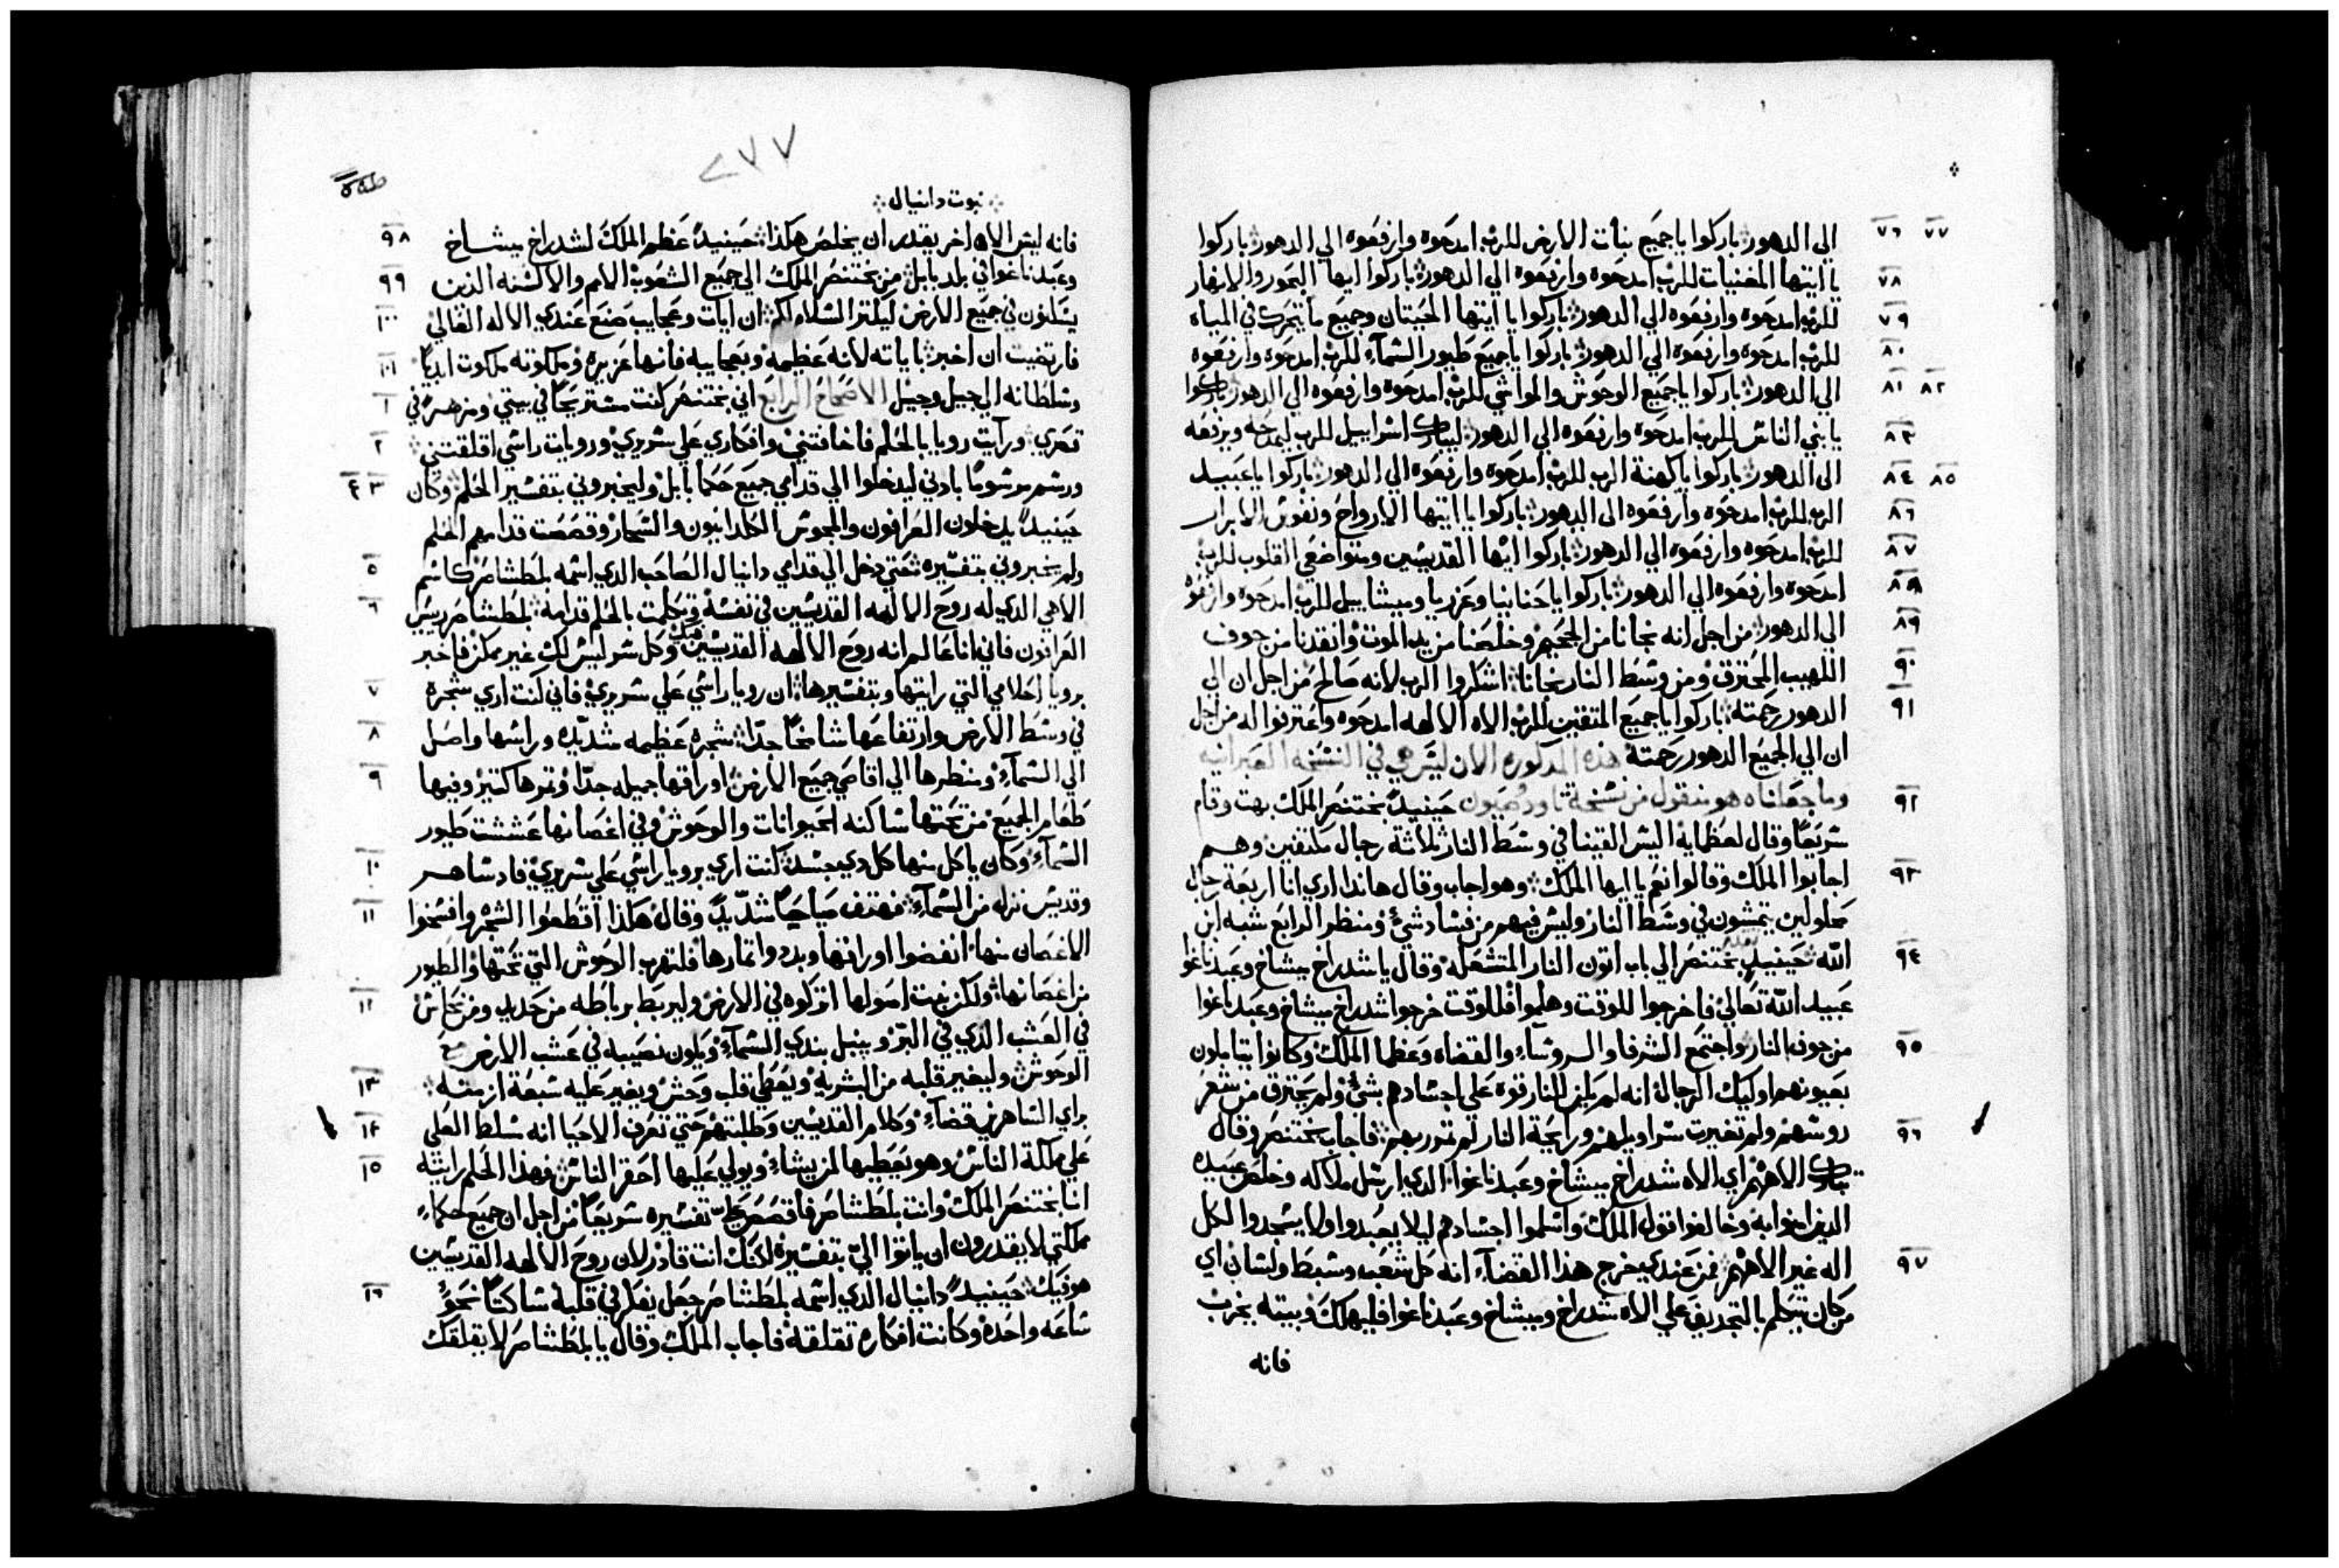 الى الدهور باركوا يا جميع بنات الارض للرب امدحوه وارفعوه الي الدهور باركوا ٧٦ ٧٧
يا ايتها المغنيات للرب امدحوه وارفعوه الي الدهور باركوا ايها البحور والانهار ٧٨
للرب امدحوه وارفعوه الي الدهور باركوا يا ايتها الحيتان وجميع ما يتحرك في المياه ٧٩
للرب امدحوه وارفعوه الي الدهور باركوا يا جميع طيور السماء للرب امدحوه وارفعوه ٨٠
الي الدهور باركوا يا جميع الوحوش والمواشي للرب امدحوه وارفعوه الي الدهور باركوا ٨١ ٨٢
يا بني الناس للرب امدحوه وارفعوه الي الدهور ليبارك اسراييل للرب ليمدحه ويرفعه ٨٣
الى الدهور باركوا يا كهنة الرب للرب امدحوه وارفعوه الي الدهور باركوا يا عبيد ٨٤ ٨٥
الرب للرب امدحوه وارفعوه الى الدهور باركوا يا ايتها الارواح ونفوس الابرار ٨٦
للرب امدحوه وارفعوه الي الدهور باركوا ايها القديسين ومتواضعي القلوب للرب ٨٧
امدحوه وارفعوه الي الدهور باركوا يا حنانيا وعزريا وميشاييل للرب امدحوه وارفعوه ٨٨
الي الدهور من اجل انه نجانا من الجحيم وخلصنا من يد الموت وانقدنا من جوف ٨٩
اللهيب المحترق ومن وسط النار نجانا اشكروا الرب لانه صالح من اجل ان الي ٩٠
الدهور رحمته باركوا يا جميع المتقين للرب الاه الالهه امدحوه واعترفوا له من اجل ٩١
ان الي الجميع الدهور رحمته هذه المدكوره الان ليس هي في النسخه العبرانيه
وما جعلناه هو منقول من نسخة تاودصيون حينيدٍ بختنصر الملك بهت وقام ٩٢
سريعًا وقال لعظمايه اليس القينا في وسط النار ثلاثة رجال مكتفين وهم
اجابوا الملك وقالوا نعم يا ايها الملك وهو اجاب وقال هاندا اري انا اربعة رجال ٩٣
محلولين يتمشون في وسط النار وليس فيهم من فساد شيء ومنظر الرابع شبه ابن
الله حينيدٍ بختنصر الي باب اتون النار المتشعله وقال يا شدراخ ميشاخ وعبدناغوا ٩٤
عبيد الله تعالي فاخرجوا للوقت وهلموا فللوقت خرجوا شدراخ ميشاخ وعبدناغوا
من جوف النار واجتمع الشرفا والروساء والقضاه وعظما الملك وكانوا يتاملون ٩٥
بعيونهم اوليك الرجال انه لم يكن للنار قوة علي اجسادهم بشيء ولم يحترق من شعر
روسهم ولم تغيرت سراويلهم ورايحة النار لم تمور بهم فاجاب بختنصر وقال ٩٦
تبارك الاههم اي الاه شدراخ ميشاخ وعبدناغوا الدي ارسل ملاكه وخلص عبيده
الدين امنوا به وخالفوا قول الملك واسلموا اجسادهم ليلا يعبدوا ولا يسجدوا لكل
اله غير الاههم فمن عندي يخرج هذا القضاء انه كل شعب وسبط ولسان اي ٩٧
من كان تيكلم بالتجديف علي الاه شدراخ وميشاخ وعبدناغوا فليهلك وبيته يخرب
فانه
٢٧٧
نبوت دانيال
فانه ليس الاه اخر يقدر ان يخلص هكذا حينيدٍ عظم الملك لشدراخ ميشاخ ٩٨
وعبدناغوا في بلد بابل من بختنصر الملك الي جميع الشعوب الامم والالسنه الدين ٩٩
يسكنون في جميع الارض ليكتر السلام لكم ان ايات وعجايب صنع عندي الاله العالي ١٠٠
فارتضيت ان اخبر باياته لانه عظيمه وبعجايبه فانها عزيزه وملكوته ملكوت ابديًا ١٠١
وسلطانه الي جيل وجيل الاصحاح الرابع اني بختنصر كنت مستريحًا في بيتي ومزهر في ١
قصري ورآيت رويا بالحلم فاخافتني وافكاري علي سريري ورويات راسي اقلقتني ٢
ورسم مرسومًا بادني ليدخلوا الي قدامي جميع حكما بابل وليخبروني بتفسير الحلم وكان ٣ ٤
حينيدٍ يدخلون العرافون والمجوس الكلدانيون والسحار وقصصت قدامهم الحلم
ولم يخبروني بتفسيره حتي دخل الي قدامي دانيال الصاحب الدي اسمه بلطشاصر كاسم ٥
الاهي الدي له روح الالهه القديسين في نفسه وتكلمت بالحلم قدامه بلطشاصر رييس ٦
العرافون فاني انا عالم انه روح الالهه القديسين فيك وكل سر ليس لك غير ممكن فاخبر
برويا احلامي التي رايتها وبتفسيرها ان رويا راسي علي سريري فاني كنت اري شجرة ٧
في وسط الارض وارتفاعها شامخًا جدًا شجرة عظيمه شديده وراسها واصل ٨
الي السماء ومنظرها الي اقاصي جميع الارض اوراقها جميله جدًا وثمرها كتير وفيها ٩
طعام الجميع من تحتها ساكنه الحيوانات والوحوش وفي اغصانها عششت طيور
السماء وكان ياكل منها كل دي جسد كنت اري برويا راسي علي سريري فادا ساهر ١٠
وقديس نزل من السماء فهتف صياحيًا شديدً وقال هكذا اقطعوا الشجر وافسخوا ١١
الاغصان منها انفضوا اوراقها وبددوا ثمارها فلتهرب الوحوش التي تحتها والطيور
من اغصانها ولكن نبت اصولها اتركوه في الارض وليربط برباطه من حديد ومن نحاس ١٢
في العشب الدي في البر ويبتل بندي السماء ويكون نصيبه في عشب الارض مع
الوحوش وليغير قلبه من البشريه ويعطي قلب وحش ويغير عليه سبعة ازمنه ١٣
براي الساهرين قضاء وكلام القديسين وطلبتهم حتي تعرف الاحيا انه سلط العلي ١٤
علي مملكة الناس وهو يعطيها لمن يشاء ويولي عليها احقر الناس فهذا الحلم رايته ١٥
انا بختنصر الملك وانت بلطشاصر فاقصص تفسيره سريعًا من اجل ان جميع حكماء
مملكتي لا يقدرون ان ياتوا اليّ بتفسيره لكنك انت قادر لان روح الالهه القديسين
هو فيك حينيدٍ دانيال الدي اسمه بلطشاصر جعل يفكر في قلبه ساكتًا نحو ١٦
ساعه واحده وكانت افكاره تقلقه فاجاب الملك وقال يا بلطشاصر لا يقلقك